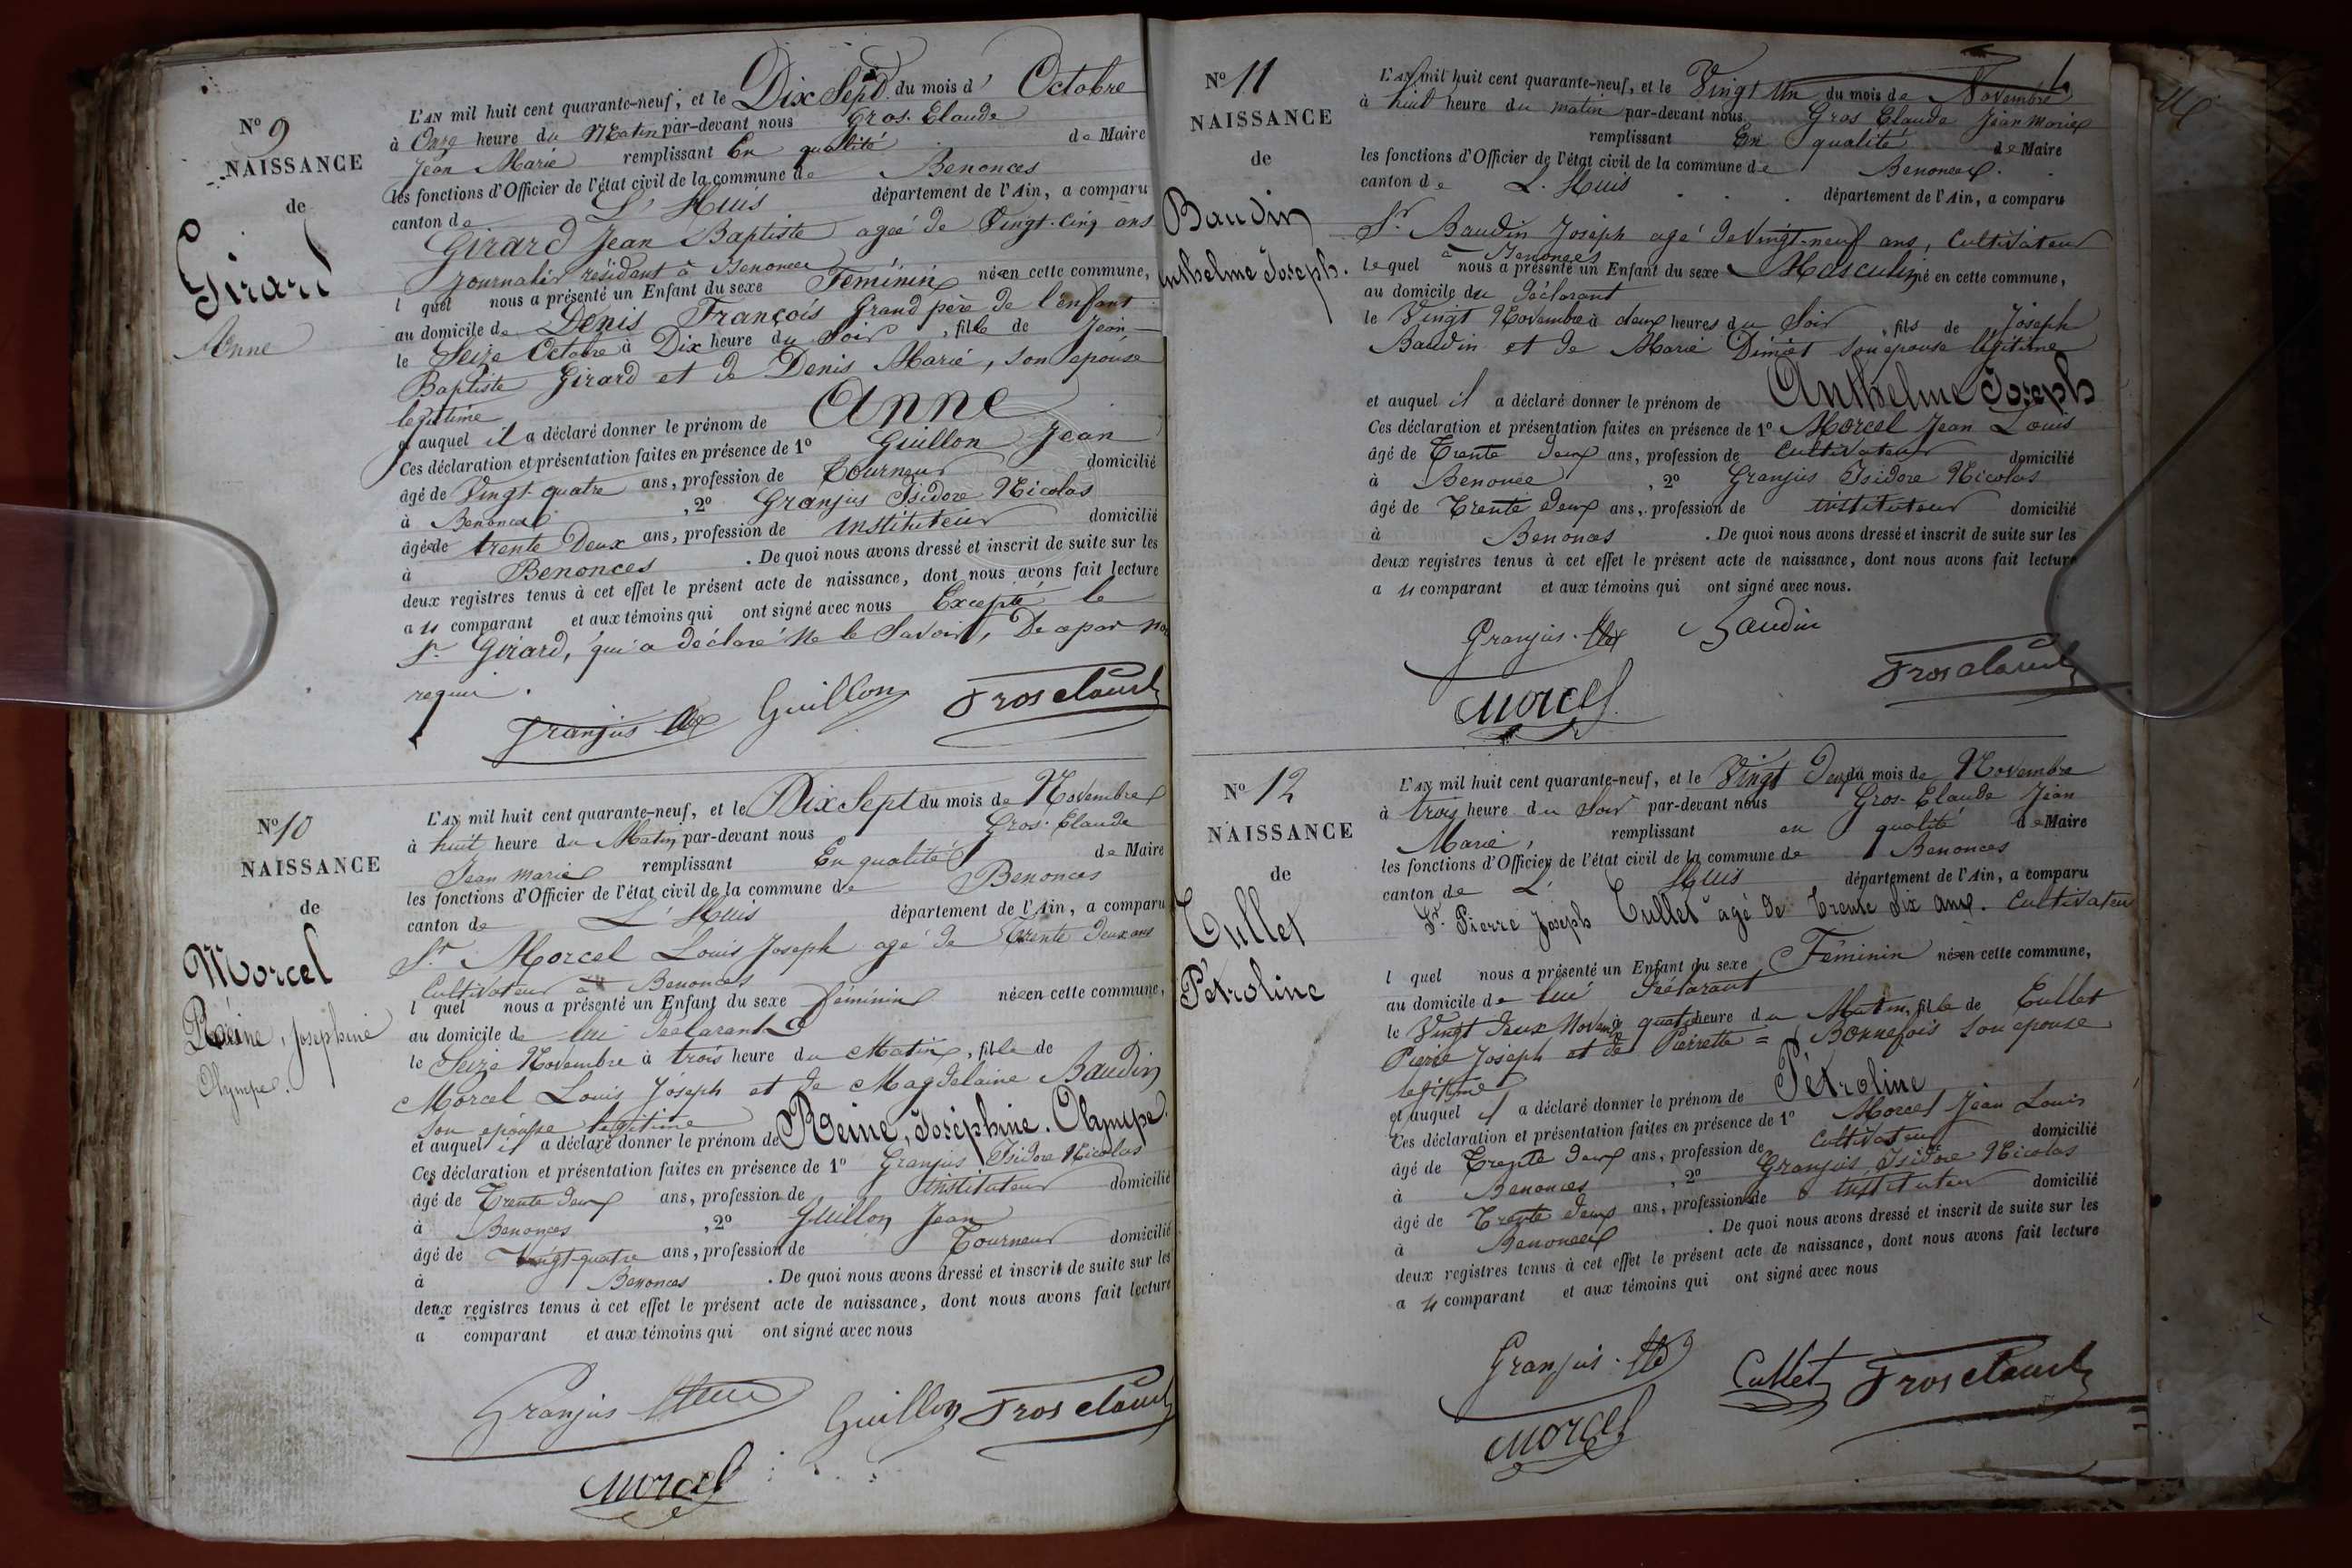 N° 9
NAISSANCE
de
Girard
Anne
L'AN mil huit cent quarante-neuf, et le Dix Sept du mois d' Octobre
à Onze heure du Matin par-devant nous Gros-Claude
Jean Marie remplissant En qualité de Maire
les fonctions d'Officier de l'état civil de la commune de Benonces
canton de L'Huis département de l'Ain, a comparu
Girard Jean Baptiste agé de Vingt-Cinq ans
journalier résidant à Benonces
l quel nous a présenté un Enfant du sexe Féminin né en cette commune,
au domicile de Denis François Grand père de l'enfant
le Seize Octobre à Dix heure du Soir, fille de Jean
Baptiste Girard et de Denis Marie, son épouse
légitime
et auquel il a déclaré donner le prénom de Anne
Ces déclaration et présentation faites en présence de 1° Guillon Jean
âgé de Vingt-quatre ans, profession de Tourneur domicilié
à Benonces, 2° Granjus Isidore Nicolas
âgé de trente Deux ans, profession de instituteur domicilié
à Benonces. De quoi nous avons dressé et inscrit de suite sur les
deux registres tenus à cet effet le présent acte de naissance, dont nous avons fait lecture
au comparant et aux témoins qui ont signé avec nous Excepté le
Sr. Girard, qui a déclaré ne le Savoir, De ce par nous
requi.
Granjus Guillon Grosclaude
N° 10
NAISSANCE
de
Morcel
Reine, Josephine
Olympe.
L'AN mil huit cent quarante-neuf, et le Dix Sept du mois de Novembre
à huit heure du Matin par-devant nous Gros-Claude
Jean Marie remplissant En qualité de Maire
les fonctions d'Officier de l'état civil de la commune de Benonces
canton de L'Huis département de l'Ain, a comparu
Sr. Morcel Louis Joseph agé de Trente deux ans
Cultivateur à Benonces
l quel nous a présenté un Enfant du sexe féminin né en cette commune,
au domicile de lui déclarant
le Seize Novembre à trois heure du Matin, fille de
Morcel Louis Joseph et de Magdelaine Baudin
son épouse légitime
et auquel il a déclaré donner le prénom de Reine, Joséphine. Olympe.
Ces déclaration et présentation faites en présence de 1° Granjus Isidore Nicolas
âgé de Trente deux ans, profession de instituteur domicilié
à Benonces, 2° Guillon Jean
âgé de Vingt-quatre ans, profession de Tourneur domicilié
à Benonces. De quoi nous avons dressé et inscrit de suite sur les
deux registres tenus à cet effet le présent acte de naissance, dont nous avons fait lecture
a comparant et aux témoins qui ont signé avec nous
Granjus Guillon Grosclaude
Morcel
N° 11
NAISSANCE
de
Baudin
Anthelme Joseph.
L'AN mil huit cent quarante-neuf, et le Vingt Un du mois de Novembre
à huit heure du matin par-devant nous Gros Claude Jean Marie
remplissant En qualité de Maire
les fonctions d'Officier de l'état civil de la commune de Benonces.
canton de L. Huis département de l'Ain, a comparu
Sr. Baudin Joseph agé de Vingt-neuf ans, Cultivateur
à Benonces
le quel nous a présenté un Enfant du sexe Masculin né en cette commune,
au domicile du déclarant
le Vingt Novembre à deux heures du Soir, fils de Joseph
Baudin et de Marie Dimiet son épouse légitime
et auquel il a déclaré donner le prénom de Anthelme Joseph
Ces déclaration et présentation faites en présence de 1° Morcel Jean Louis
âgé de Trente deux ans, profession de Cultivateur domicilié
à Benonce, 2° Granjus Isidore Nicolas
âgé de Trente deux ans, profession de instituteur domicilié
à Benonces. De quoi nous avons dressé et inscrit de suite sur les
deux registres tenus à cet effet le présent acte de naissance, dont nous avons fait lecture
au comparant et aux témoins qui ont signé avec nous.
Granjus Baudin
Morcel Grosclaude
N° 12
NAISSANCE
de
Cullet
Pétroline
L'AN mil huit cent quarante-neuf, et le Vingt Deux du mois de Novembre
à trois heure du Soir par-devant nous Gros-Claude Jean
Marie, remplissant en qualité de Maire
les fonctions d'Officier de l'état civil de la commune de Benonces
canton de L'Huis département de l'Ain, a comparu
Sr. Pierre Joseph Cullet agé de Trente dix ans. Cultivateur
l quel nous a présenté un Enfant du sexe Féminin né en cette commune,
au domicile de lui déclarant
le Vingt deux Novemb. à quatre heure du Matin, fille de Cullet
Pierre Joseph et de Pierrette = Bonnefois son épouse
légitime
et auquel il a déclaré donner le prénom de Pétroline
Ces déclaration et présentation faites en présence de 1° Morcel Jean Louis
âgé de Trente deux ans, profession de Cultivateur domicilié
à Benonces, 2° Granjus Isidore Nicolas
âgé de Trente deux ans, profession de instituteur domicilié
à Benonces. De quoi nous avons dressé et inscrit de suite sur les
deux registres tenus à cet effet le présent acte de naissance, dont nous avons fait lecture
au comparant et aux témoins qui ont signé avec nous
Granjus Cullet Grosclaude
Morcel